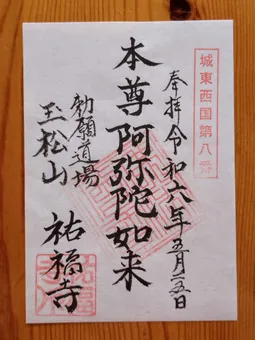 城東西国第八番
奉拝 令和六年五月二五日
本尊阿弥陀如来
勅願道場
玉松山 祐福寺